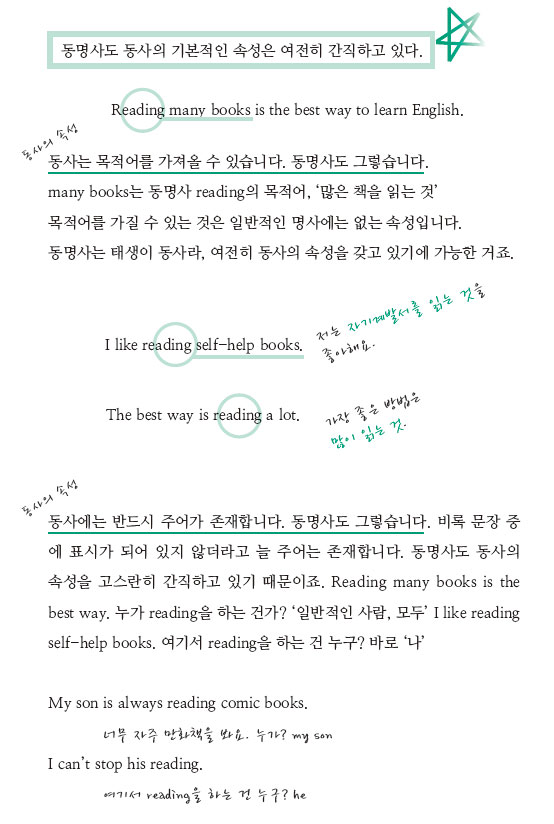 동명사도 동사의 기본적인 속성은 여전히 간직하고 있다.
Reading many books is the best way to learn English.
동사의 속성
동사는 목적어를 가져올 수 있습니다. 동명사도 그렇습니다.
many books는 동명사 reading의 목적어, ‘많은 책을 읽는 것’
목적어를 가질 수 있는 것은 일반적인 명사에는 없는 속성입니다.
동명사는 태생이 동사라, 여전히 동사의 속성을 갖고 있기에 가능한 거죠.
I like reading self-help books.
저는 자기계발서를 읽는 것을
좋아해요.
The best way is reading a lot.
가장 좋은 방법은
많이 읽는 것.
동사의 속성
동사에는 반드시 주어가 존재합니다. 동명사도 그렇습니다. 비록 문장 중
에 표시가 되어 있지 않더라고 늘 주어는 존재합니다. 동명사도 동사의
속성을 고스란히 간직하고 있기 때문이죠. Reading many books is the
best way. 누가 reading을 하는 건가? ‘일반적인 사람, 모두’ I like reading
self-help books. 여기서 reading을 하는 건 누구? 바로 ‘나’
My son is always reading comic books.
너무 자주 만화책을 봐요. 누가? my son
I can’t stop his reading.
여기서 reading을 하는 건 누구? he